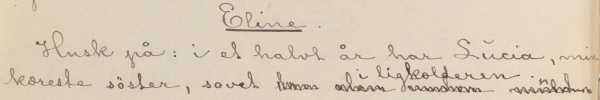 Eline.
Husk på: i et halvt år har Lucia, min
kæreste söster, sovet i ligkælderen